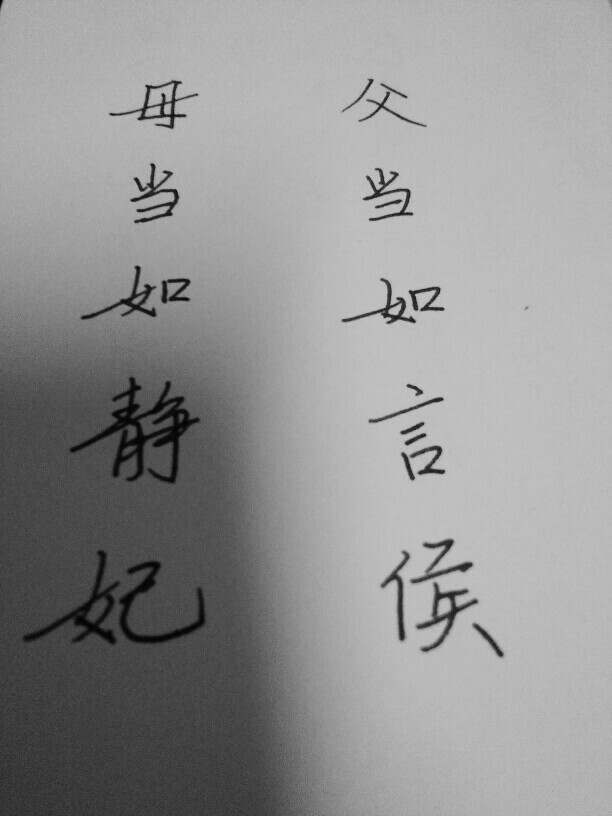 父当如言侯
母当如静妃